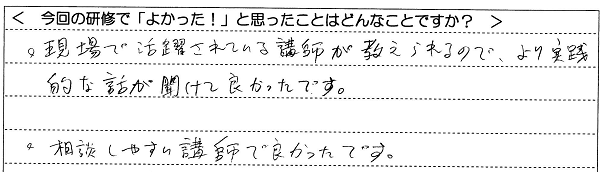 ＜ 今回の研修で「よかった！」と思ったことはどんなことですか？ ＞
。現場で活躍されている講師が教えられるので、より実践
的な話が聞けて良かったです。
。相談しやすい講師で良かったです。